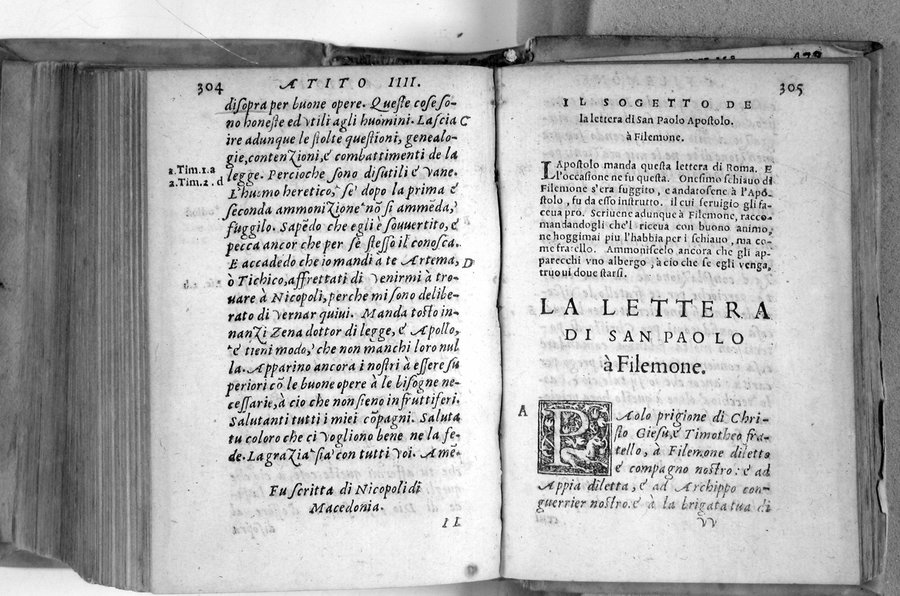 304
A TITO IIII.
disopra per buone opere. Queste cose so-
no honeste ed vtili agli huomini. Lascia C
ire adunque le stolte questioni, genealo-
gie, contenzioni, è combattimenti de la
a.Tim.1.a
legge. Percioche sono disutili è vane.
2.Tim.2.d
L'huomo heretico, se dopo la prima è
seconda ammonizione nō si ammēda,
fuggilo. Sapēdo che egli è souuertito, è
pecca ancor che per se stesso il conosca.
E accadedo che io mandi a te Artema, D
ò Tichico, affrettati di venirmi à tro-
uare à Nicopoli, perche mi sono delibe-
rato di vernar quiui. Manda tosto in-
nanzi Zena dottor di legge, è Apollo,
è tieni modo, che non manchi loro nul
la. Apparino ancora i nostri à essere su
periori cō le buone opere à le bisogne ne-
cessarie, à cio che non sieno infruttiferi.
Salutanti tutti i miei cōpagni. Saluta
tu coloro che ci vogliono bene ne la fe-
de. La grazia sia con tutti voi. Amē.
Fu scritta di Nicopoli di
Macedonia.
IL
305
IL SOGETTO DE
la lettera di San Paolo Apostolo.
à Filemone.
L Apostolo manda questa lettera di Roma. E
l'occasione ne fu questa. Onesimo schiauo di
Filemone s'era fuggito, e andatosene à l'Apo-
stolo, fu da esso instrutto. il cui seruigio gli fa-
ceua pro. Scriuene adunque à Filemone, racco-
mandandogli che'l riceua con buono animo,
ne hoggimai piu l'habbia per ischiauo, ma co-
me fratello. Ammoniscelo ancora che gli ap-
parecchi vno albergo, à cio che se egli venga,
truoui doue starsi.
LA LETTERA
DI SAN PAOLO
à Filemone.
A
PAolo prigione di Chri-
sto Giesu, è Timotheo fra-
tello, à Filemone diletto
è compagno nostro: è ad
Appia diletta, è ad Archippo con-
guerrier nostro. è à la brigata tua di
VV